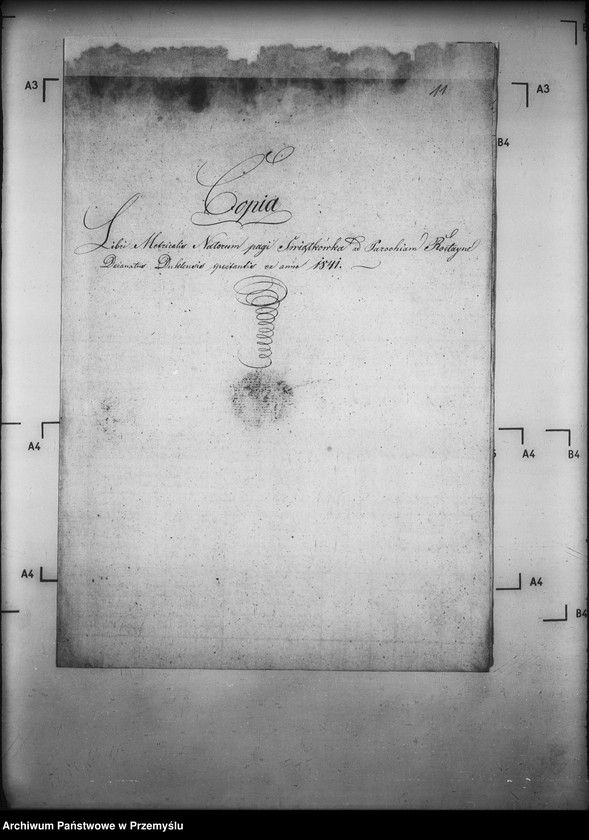 11
A3
A3
B4
Copia
Libri Metricalis Natorum pagi Swiątkówka ad Parochiam Rostayne
Decanatus Duklensis spectantis ex anno 1841.
A4
A4
B4
A4
A4
B4
Archiwum Państwowe w Przemyślu